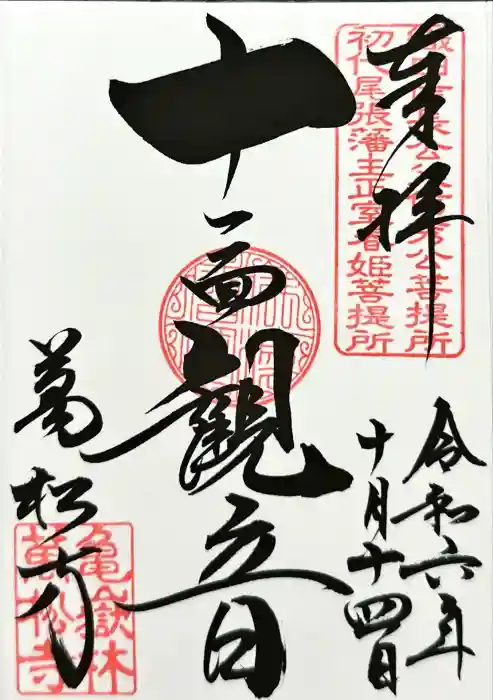 奉拝
織田信長公
秀公菩提所
初代尾張藩主正室春姫菩提所
令和六年
十月十四日
十一面觀音
萬松寺
亀嶽林
萬松寺